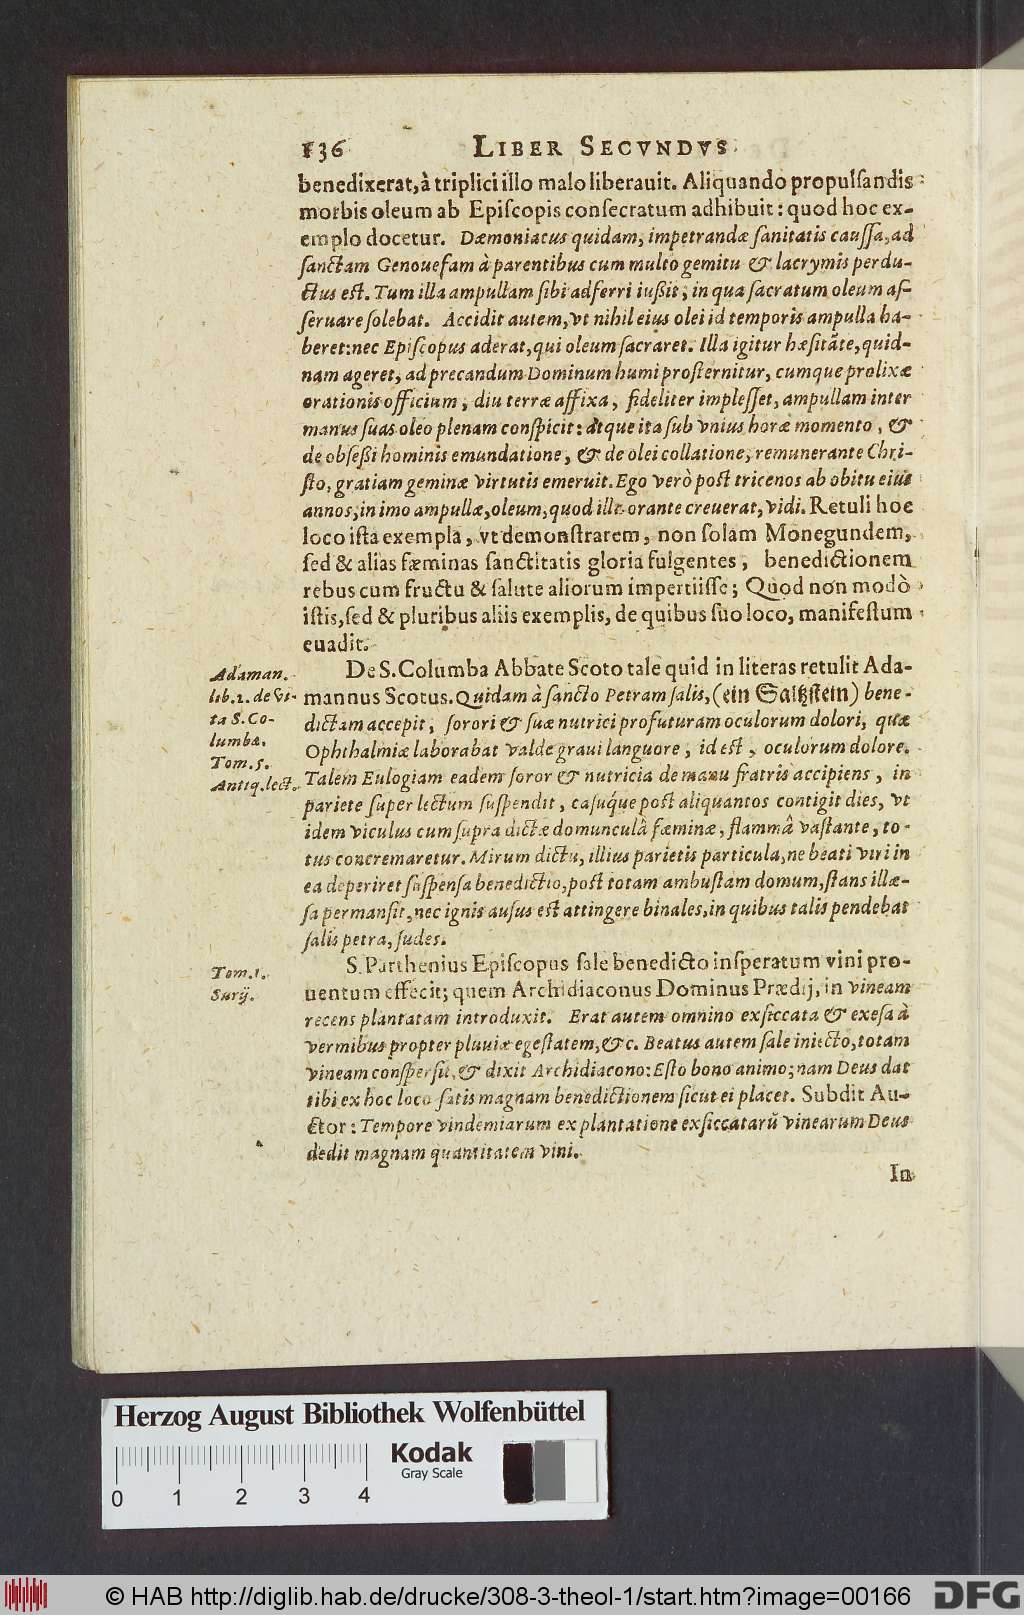 136 LIBER SECVNDVS.
benedixerat, à triplici illo malo liberauit. Aliquando propulſandis
morbis oleum ab Epiſcopis conſecratum adhibuit: quod hoc ex-
emplo docetur. Dæmoniacus quidam, impetrandæ ſanitatis cauſſa, ad
ſanctam Genouefam à parentibus cum multo gemitu & lacrymis perdu-
ctus eſt. Tum illa ampullam ſibi adferri iußit, in qua ſacratum oleum aſ-
ſeruare ſolebat. Accidit autem, vt nihil eius olei id temporis ampulla ha-
beret: nec Epiſcopus aderat, qui oleum ſacraret. Illa igitur hæſitãte, quid-
nam ageret, ad precandum Dominum humi proſternitur, cumque prolixæ
orationis officium, diu terræ affixa, fideliter impleſſet, ampullam inter
manus ſuas oleo plenam conſpicit: atque ita ſub vnius horæ momento, &
de obſeßi hominis emundatione, & de olei collatione, remunerante Chri-
ſto, gratiam geminæ virtutis emeruit. Ego verò poſt tricenos ab obitu eius
annos, in imo ampullæ, oleum, quod illa orante creuerat, vidi. Retuli hoc
loco iſta exempla, vt demonſtrarem, non ſolam Monegundem,
ſed & alias fæminas ſanctitatis gloria fulgentes, benedictionem
rebus cum fructu & ſalute aliorum impertiiſſe; Quod non modò
iſtis, ſed & pluribus aliis exemplis, de quibus ſuo loco, manifeſtum
euadit.
De S. Columba Abbate Scoto tale quid in literas retulit Ada-
Adaman.
lib. 2. de vi-
ta S. Co-
lumbæ.
Tom. 5.
Antiq. lect.
mannus Scotus. Quidam à ſancto Petram ſalis, (ein Saltzſtein) bene-
dictam accepit, ſorori & ſuæ nutrici profuturam oculorum dolori, quæ
Ophthalmiæ laborabat valde graui languore, id eſt, oculorum dolore.
Talem Eulogiam eadem ſoror & nutricia de manu fratris accipiens, in
pariete ſuper lectum ſuſpendit, caſuq́ue poſt aliquantos contigit dies, vt
idem viculus cum ſupra dictæ domunculâ fæminæ, flammâ vaſtante, to-
tus concremaretur. Mirum dictu, illius parietis particula, ne beati viri in
ea deperiret ſuſpenſa benedictio, poſt totam ambuſtam domum, ſtans illæ-
ſa permanſit, nec ignis auſus eſt attingere binales, in quibus talis pendebat
ſalis petra, ſudes.
S. Parthenius Epiſcopus ſale benedicto inſperatum vini pro-
Tom. 1.
Surij.
uentum effecit; quem Archidiaconus Dominus Prædij, in vineam
recens plantatam introduxit. Erat autem omnino exſiccata & exeſa à
vermibus propter pluuiæ egeſtatem, &c. Beatus autem ſale iniecto, totam
vineam conſperſit, & dixit Archidiacono: Eſto bono animo; nam Deus dat
tibi ex hoc loco ſatis magnam benedictionem ſicut ei placet. Subdit Au-
ctor: Tempore vindemiarum ex plantatione exſiccatarũ vinearum Deus
dedit magnam quantitatem vini.
In
Herzog August Bibliothek Wolfenbüttel
Kodak
Gray Scale
0 1 2 3 4
© HAB http://diglib.hab.de/drucke/308-3-theol-1/start.htm?image=00166
DFG